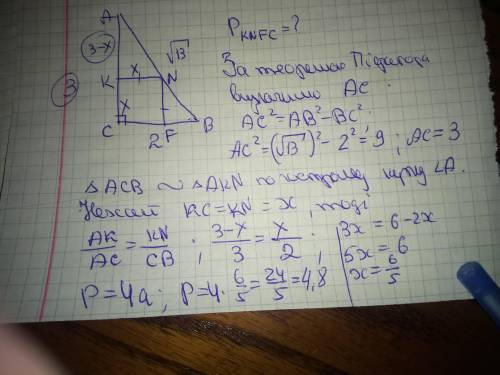 A
3-x
√13
x
K
N
3
x
C
2
F
B
P KNFC = ?
За теоремою Піфагора
визначимо AC.
AC² = AB² - BC²
AC² = (√13)² - 2² = 9 ; AC = 3
△ACB ~ △AKN по гострому куту ∠A.
Нехай KC = KN = x, тоді
AK/AC = KN/CB ; (3-x)/3 = x/2 ;
3x = 6 - 2x
5x = 6
x = 6/5
P = 4a ; P = 4 · 6/5 = 24/5 = 4,8